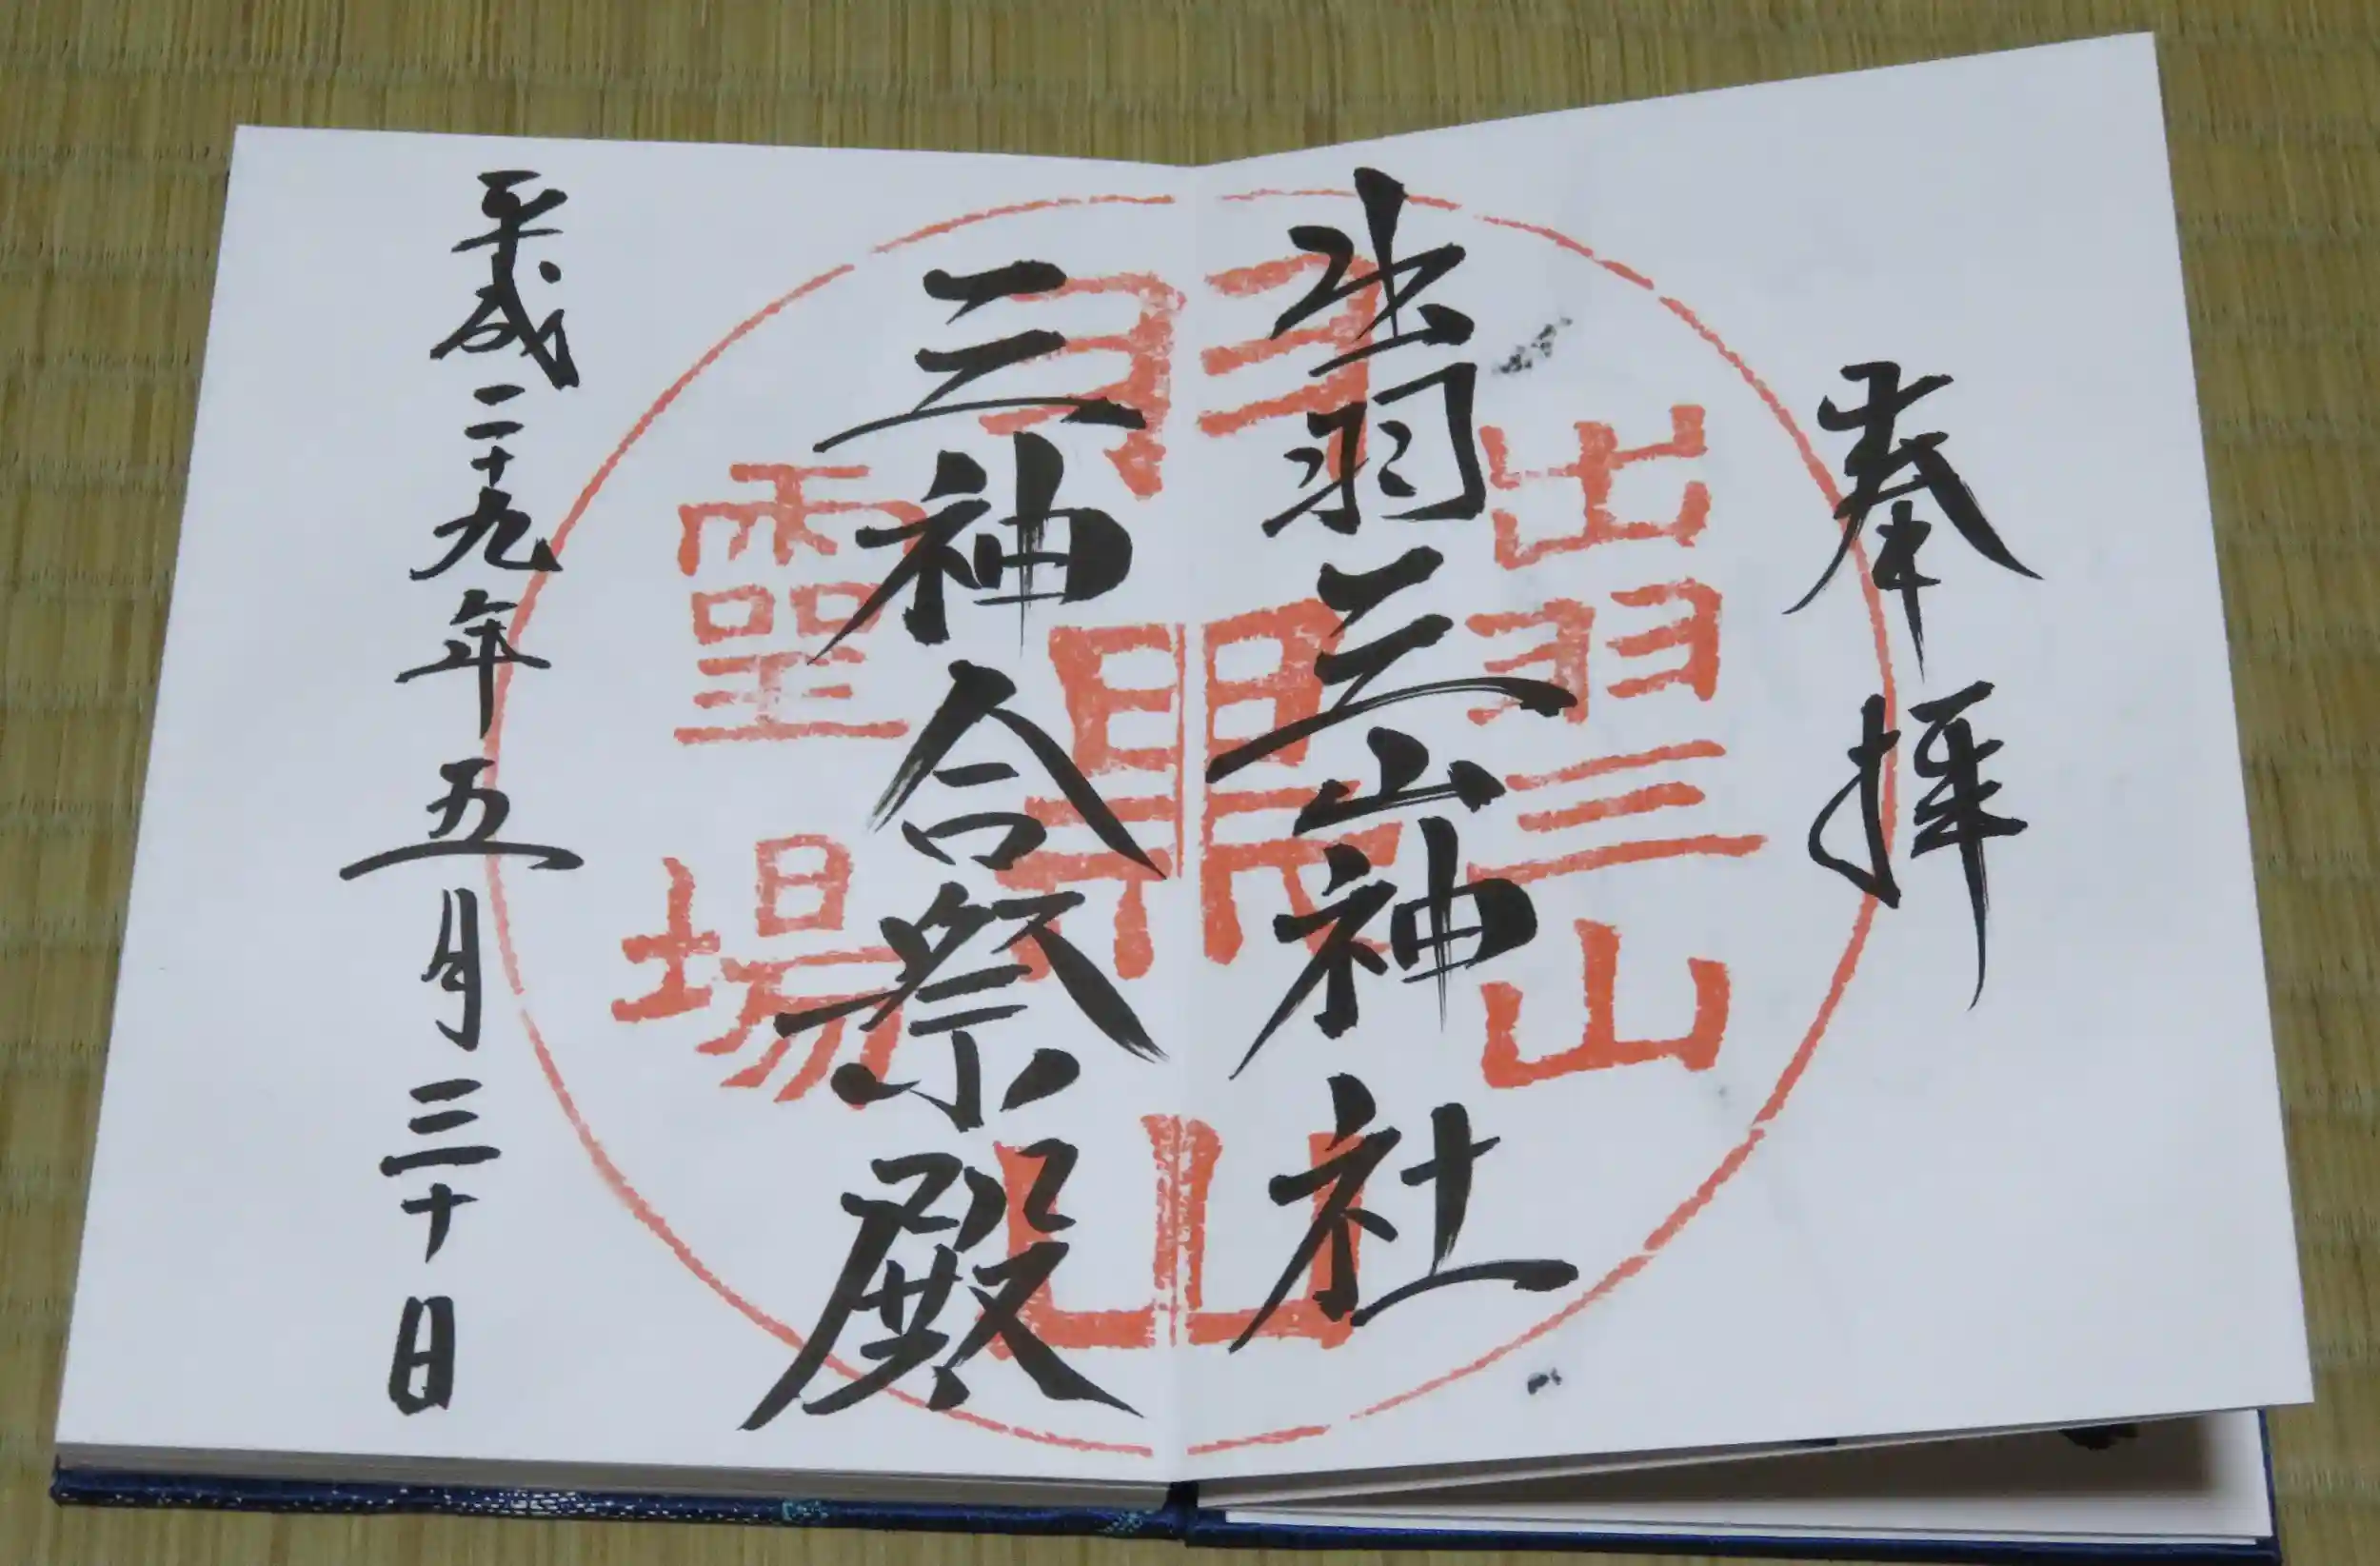 奉拝
出羽三山神社
三神合祭殿
平成二十九年五月三十日
出羽三山
羽黒山
霊場